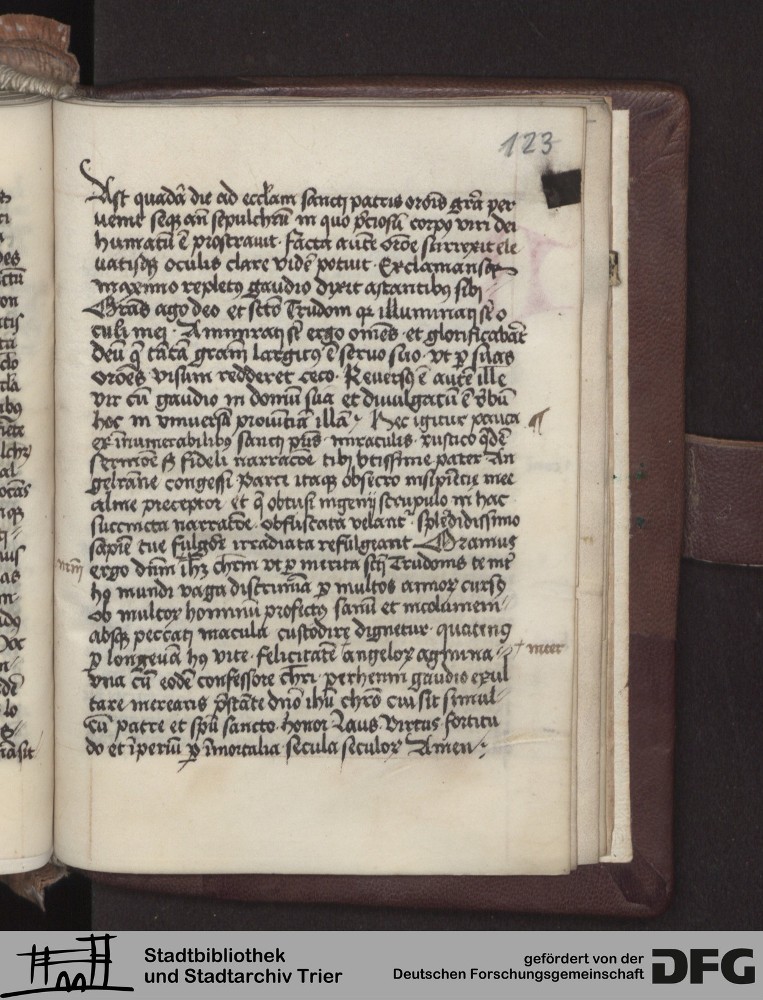 123
Ast quadā die ad eccl̄am sancti patris orōis grā per
uenit seqꝫ an̄ sepulchrū in quo p̄ciosū corpꝰ viri dei
humatū ē prostrauit · facta aūte orōe surrexit ele
uatisqꝫ oculis clare vidē potuit · Exclamansqꝫ
maximo repletꝰ gaudio dixit astantibꝰ sibi
Grās ago deo et scto Trudoni qr illuminati st̄ o
culi mei · Ammirati st̄ ergo om̄es · et glorificabāt
deū q̄ tātā grām largitꝰ ē seruo suo · vt ꝑ suas
orōes visum redderet ceco · Reuersꝰ ē aūte ille
vir cū gaudio in domū suā et diuulgatū ē v̄bū
hoc in vniuersā prouītiā illā · Hec igitur pauca
ex īnumerabilibꝰ sancti pr̄is miraculis · rustico qdē
sermōe sꝫ fideli narracōe tibi btissime pater An
gelrāne congessi Parci itaqꝫ obsecro insipiētie mee
alme preceptor et q̄ obtusi ingenij scrupulo in hac
succincta narratōe · obfuscata velant̄ · splēdidissimo
sapiē tue fulgōr irradiata refulgeant Oramus
ergo dn̄m ih̄ꝫ chr̄m vt ꝑ merita sc̄ti Trudonis te int̄
hꝰ mundi vaga discrimīa ꝑ multos annoꝝ cursꝰ
ob multoꝝ hominū profectꝰ sanū et incolumem
absqꝫ peccati macula custodire dignetur · quatenꝰ
ꝑ longeuā hꝰ vite · felicitatē angeloꝝ agmina + inter
vna cū eodē confessore chr̄i · perhenni gaudio exul
tare merearis p̄stāte dn̄o ih̄u chr̄o cui sit simul
cū patre et sp̄u sancto · honor Laus Virtus fortitu
do et īperiū ꝑ īmortalia secula seculoꝝ Amen
Stadtbibliothek
und Stadtarchiv Trier
gefördert von der
Deutschen Forschungsgemeinschaft
DFG